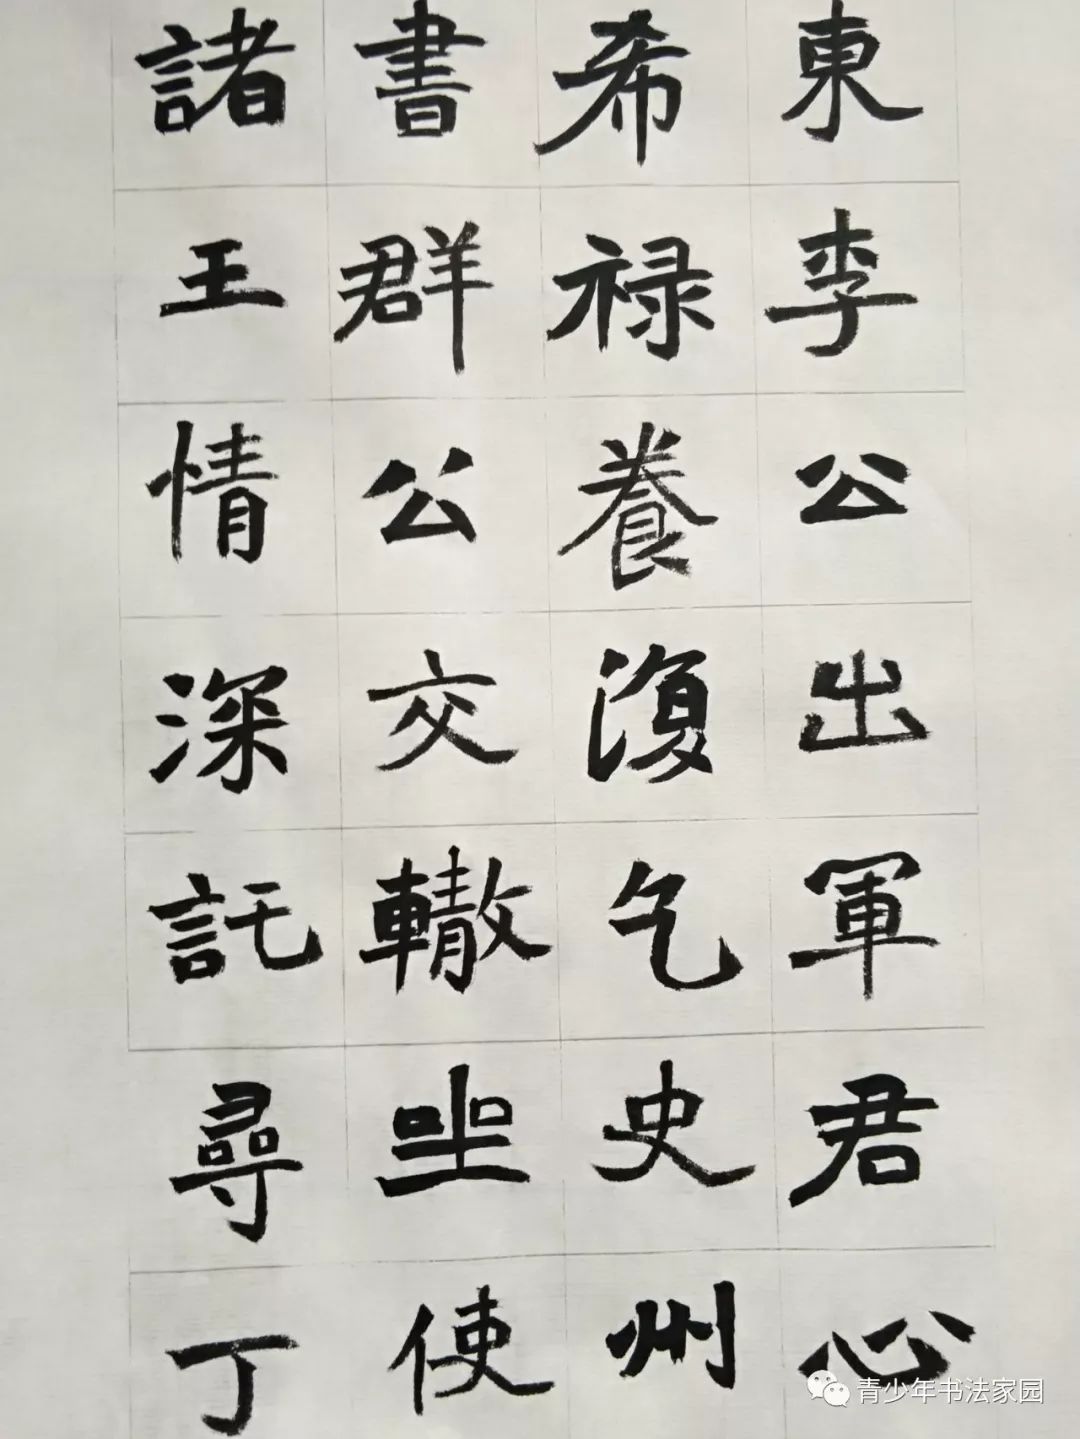 東李公出軍君心
希禄養復乞史州
書群公交轍坐使
諸王情深託尋丁
青少年书法家园